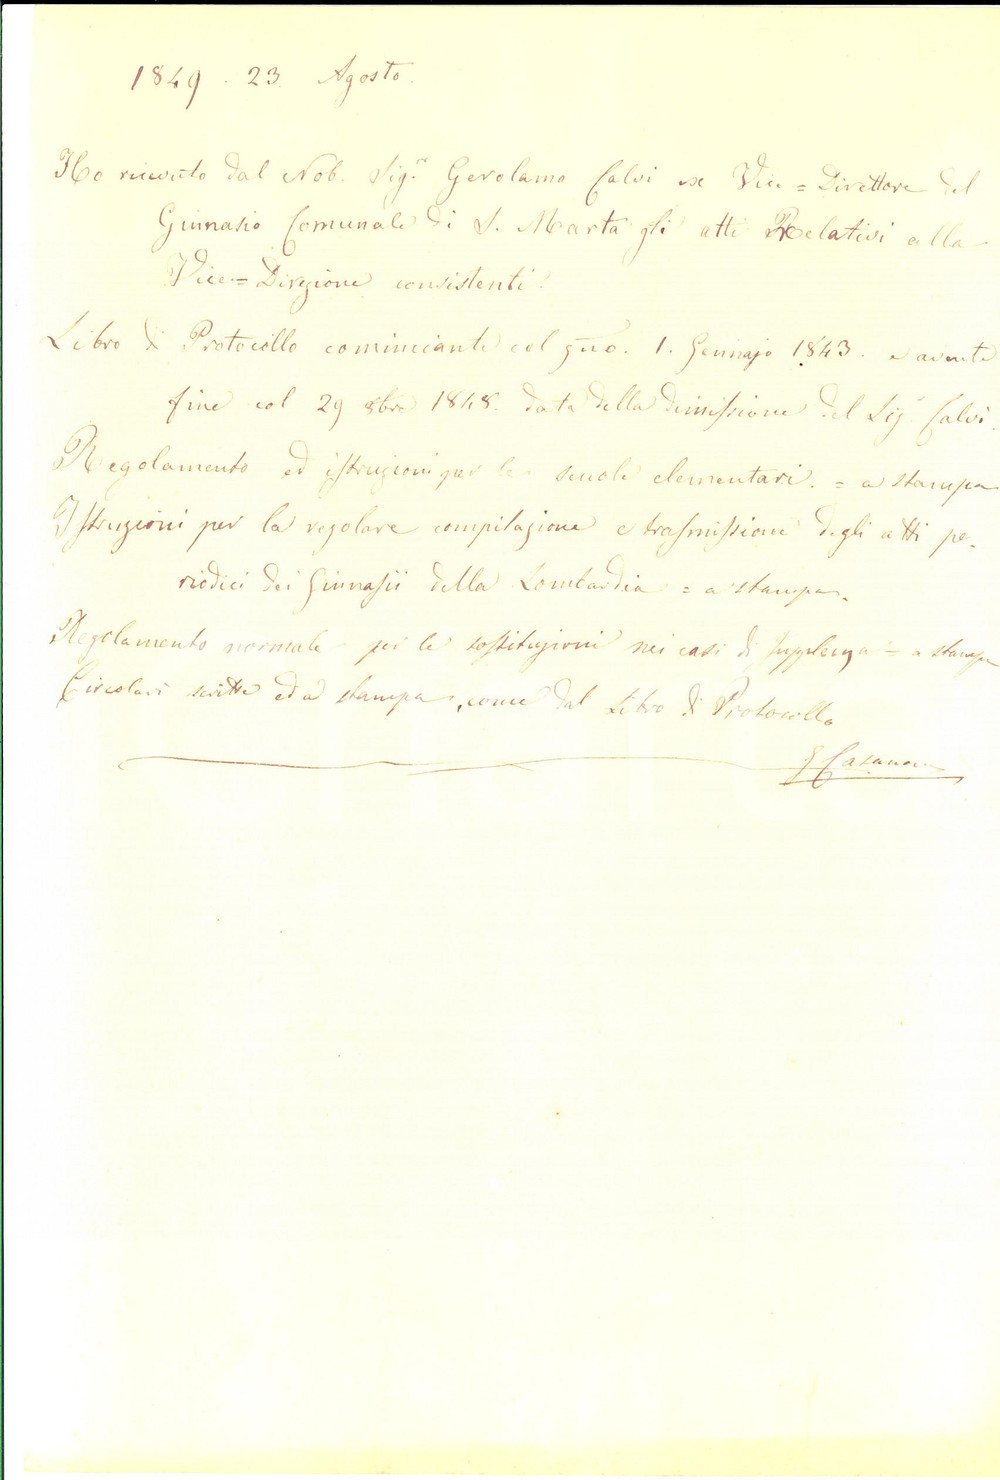 1849 . 23. Agosto.
Ho ricevuto dal Nob. Sig.r Gerolamo Calvi ex Vice = Direttore del
Ginnasio Comunale di S. Marta gli atti Relativi alla
Vice = Direzione consistenti:
Libro di Protocollo cominciante col gno. 1. Gennajo 1843. e avente
fine col 29 8bre 1848. data della dimissione del Sig.r Calvi.
Regolamento ed istruzioni per le scuole elementari. = a stampa
Istruzioni per la regolare compilazione e trasmissione degli atti pe-
riodici dei Ginnasii della Lombardia = a stampa.
Regolamento normale per le sostituzioni nei casi di supplenza = a stampa
Circolari scritte ed a stampa, come dal Libro di Protocollo
G Casanova